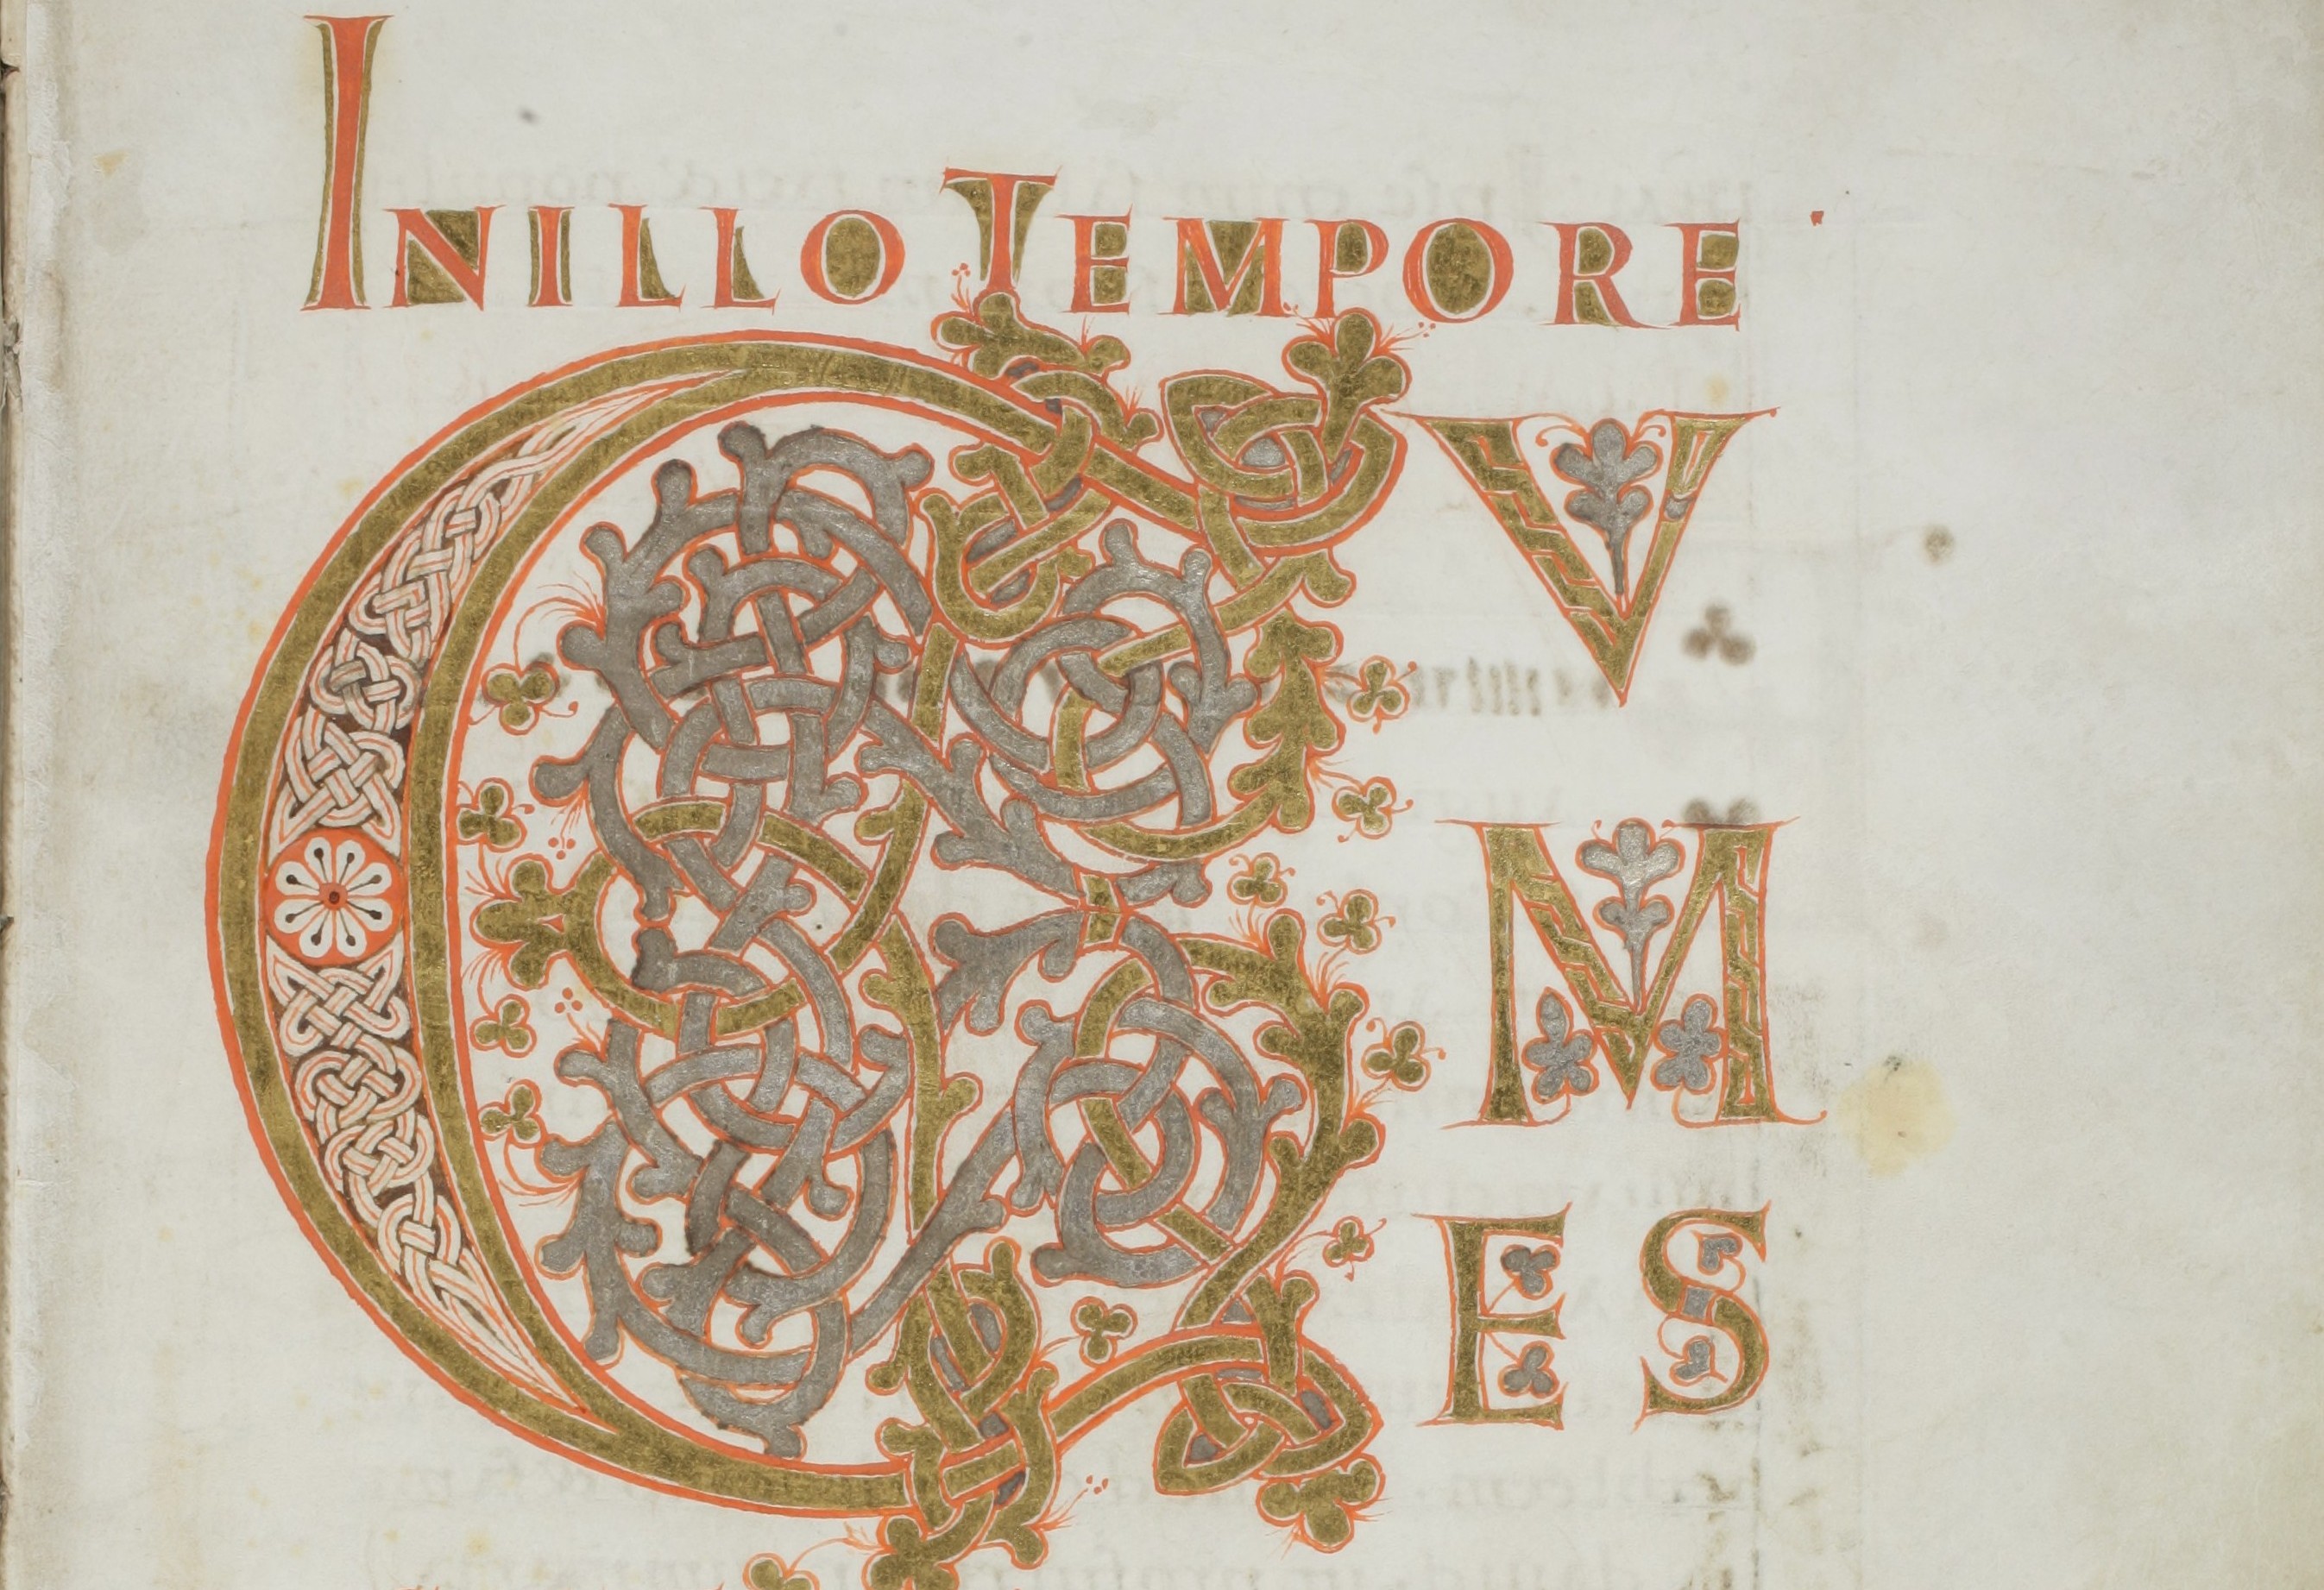 INILLO TEMPORE
CV
M
ES